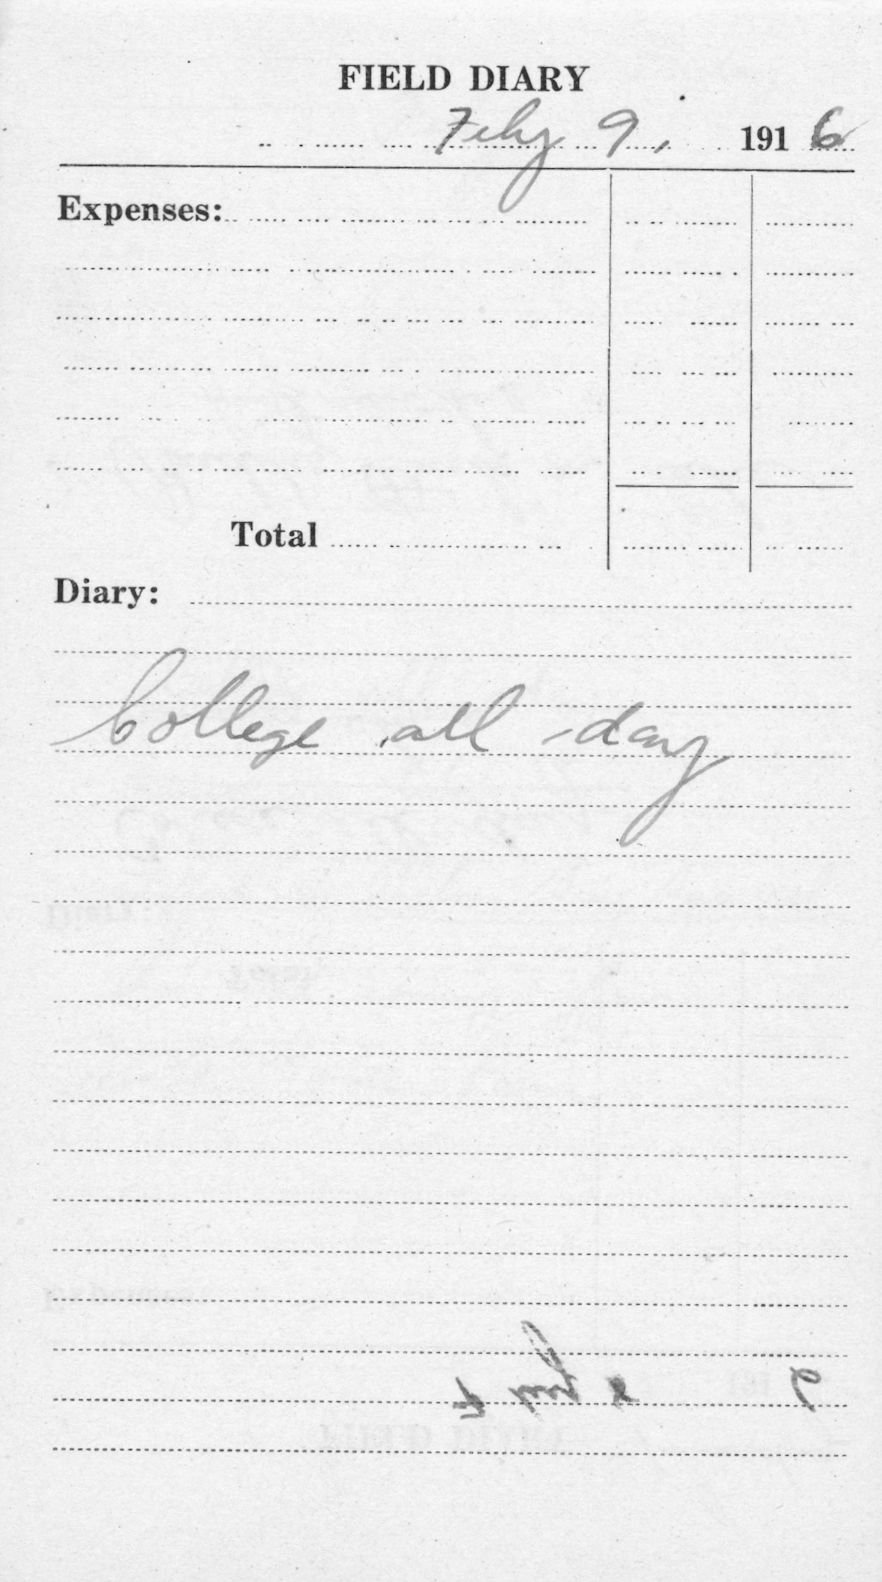 FIELD DIARY
Feby 9, 1916
Expenses:
Total
Diary:
College all day